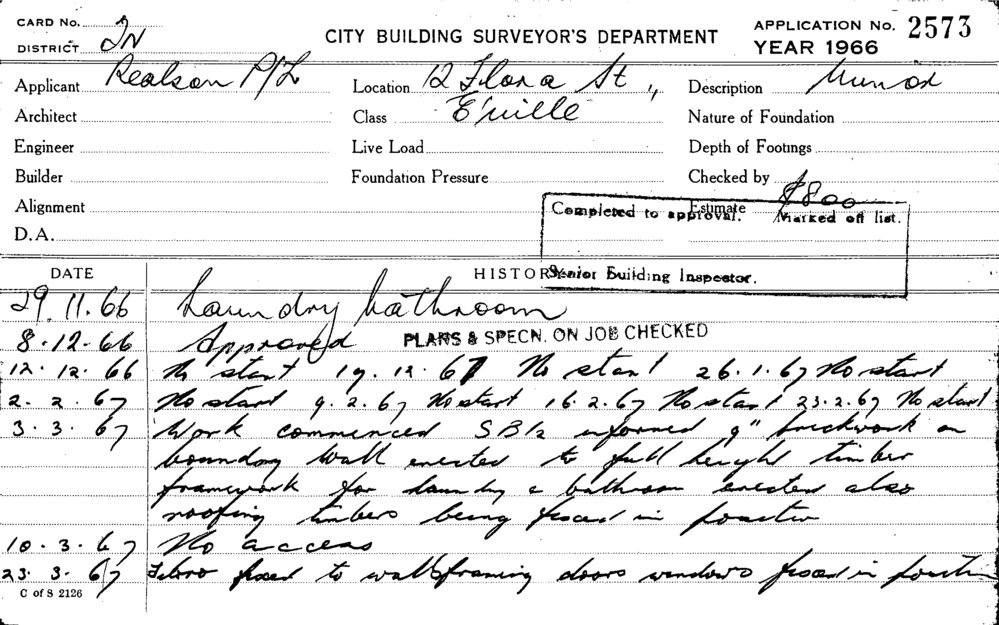 CARD No.
DISTRICT 2N
CITY BUILDING SURVEYOR'S DEPARTMENT
APPLICATION No. 2573
YEAR 1966
Applicant Realson P/L
Location 12 Flora St.,
Description Minor
Architect
Class E'ville
Nature of Foundation
Engineer
Live Load
Depth of Footings
Builder
Foundation Pressure
Checked by
Alignment
Estimate $800
Completed to approval. Marked off list.
D.A.
Senior Building Inspector.
DATE HISTORY
29.11.66 Laundry bathroom
8.12.66 Approved PLANS & SPECN. ON JOB CHECKED
12.12.66 No start 19.12.67 No start 26.1.67 No start
2.2.67 No start 9.2.67 No start 16.2.67 No start 23.2.67 No start
3.3.67 Work commenced informed 9" brickwork on
boundary wall erected to full height timber
framework for laundry & bathroom erected also
roofing timbers being fixed in position
10.3.67 No access
23.3.67 fixed to wall framing doors windows fixed in position
C of S 2126